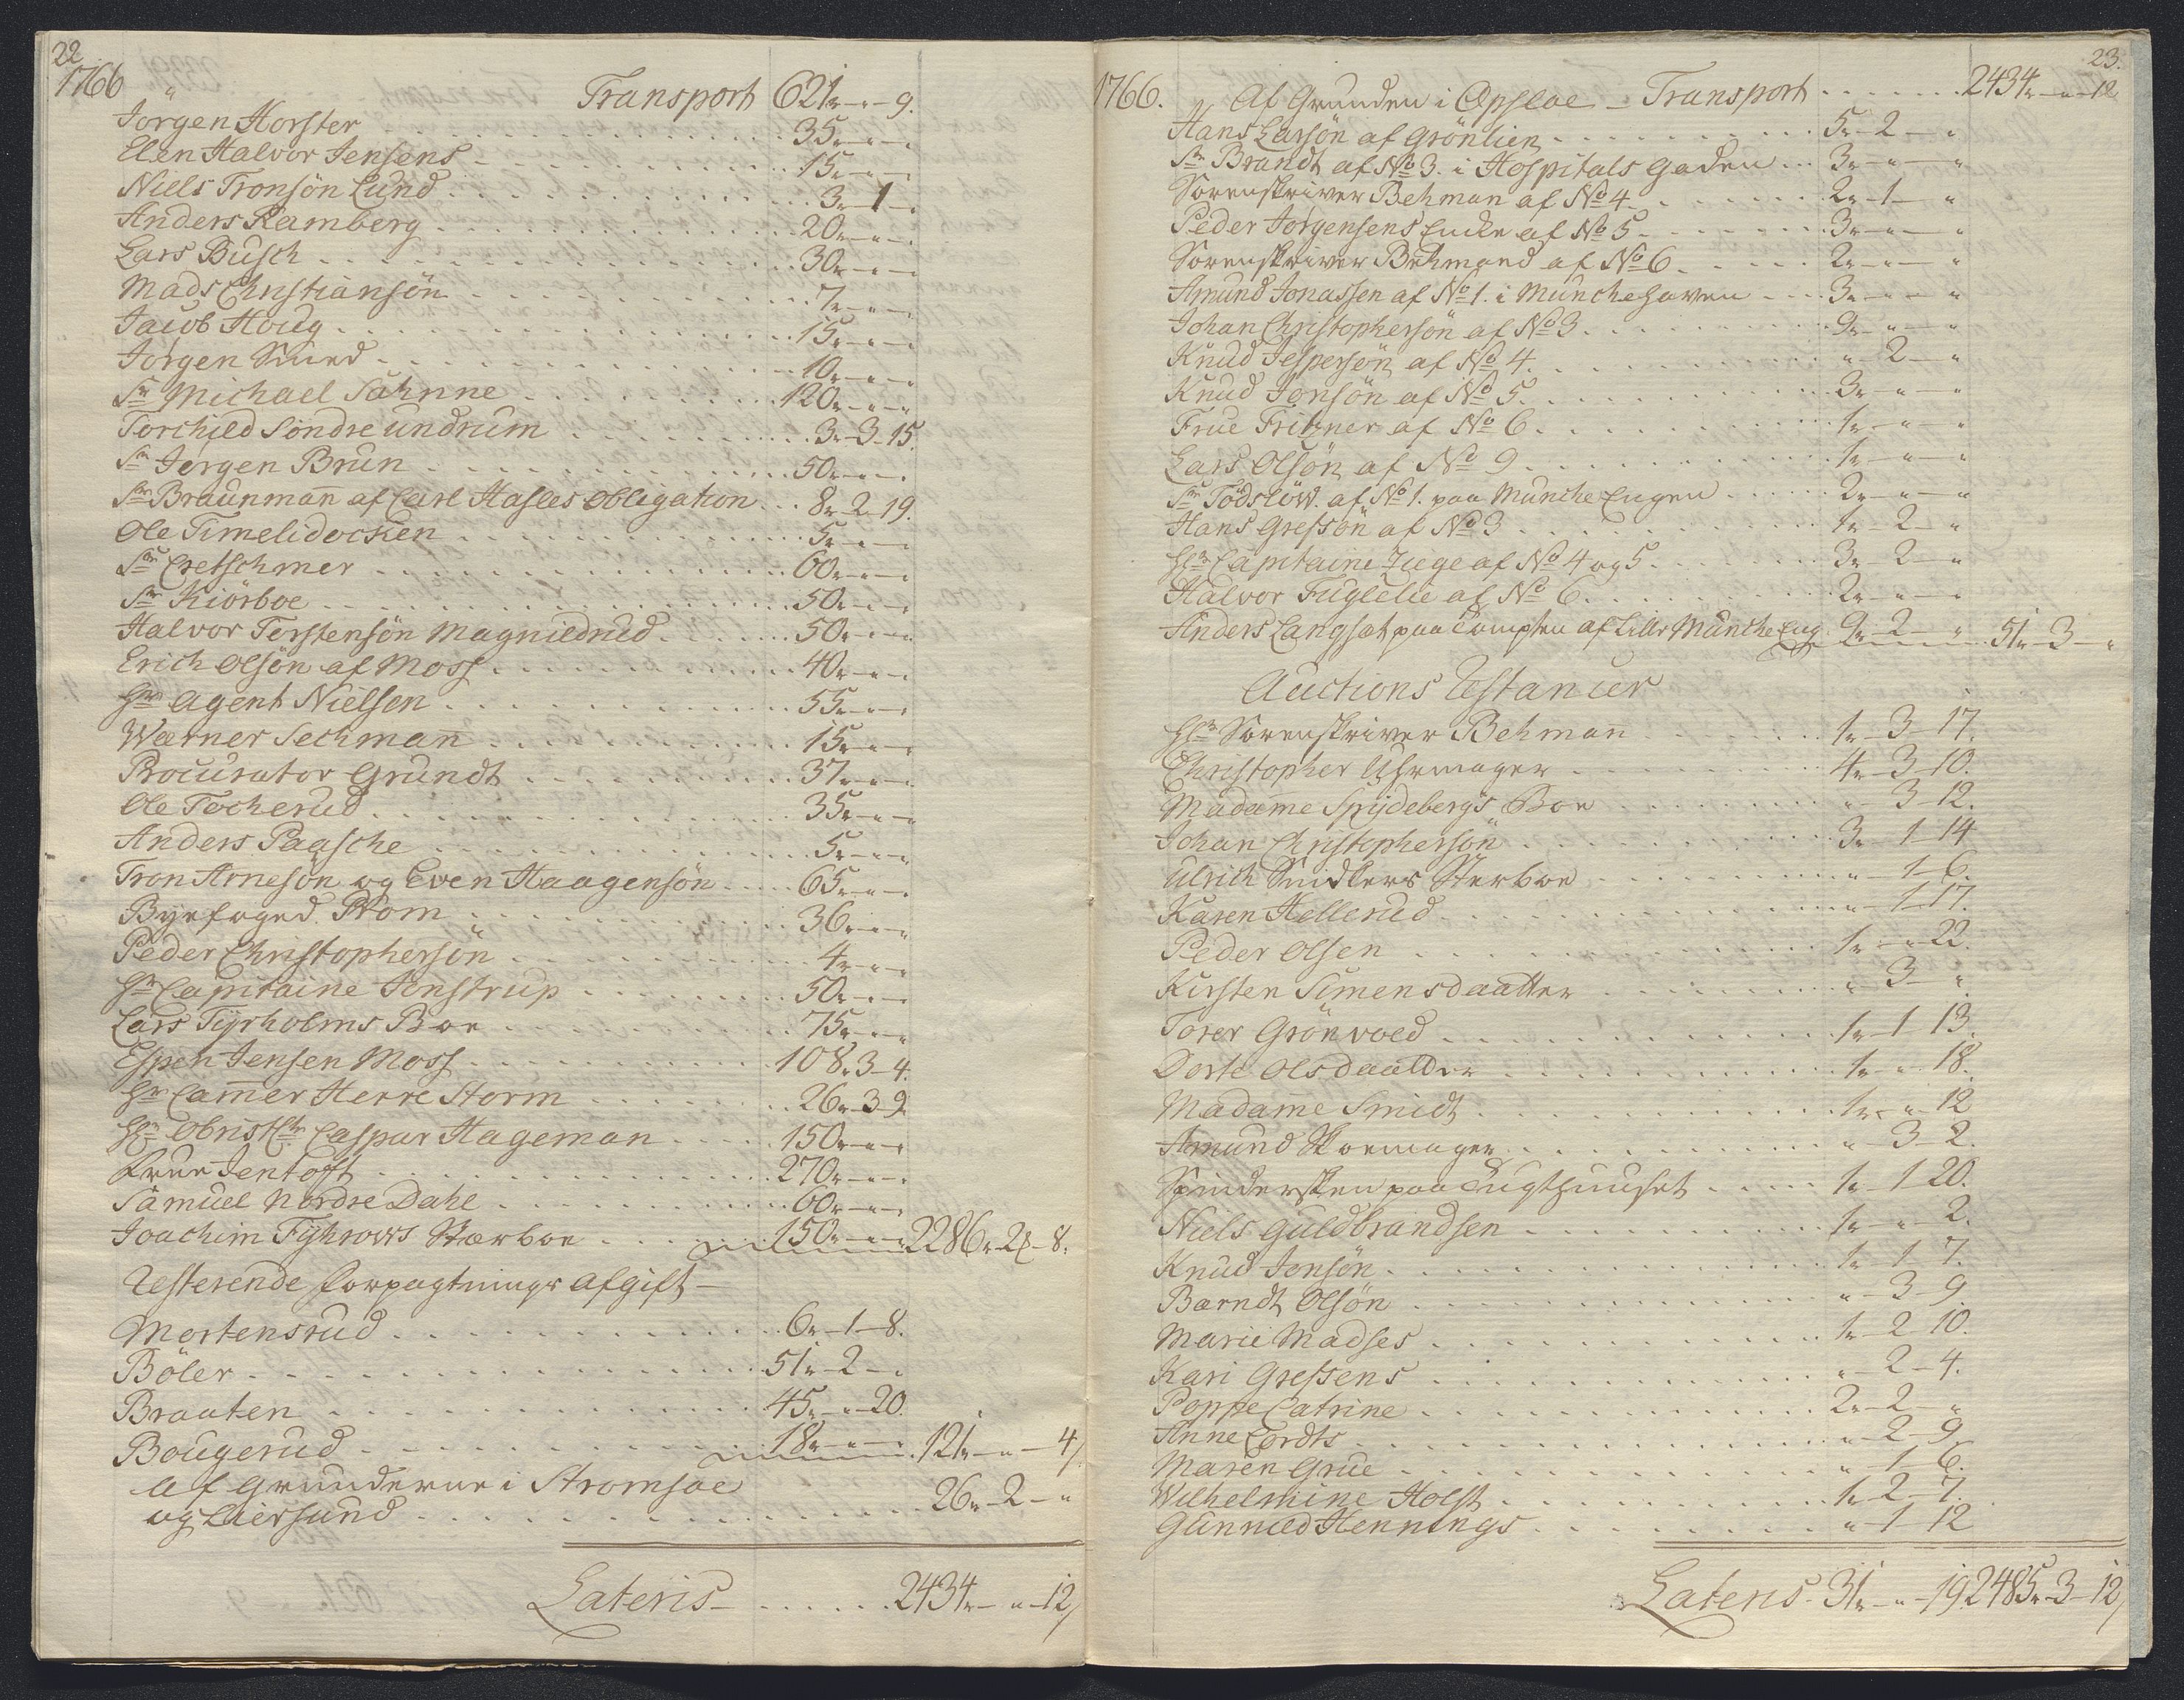 22
1766
Transport 621 „ - „ - 9.
Jörgen Horster 35 „ - „ - „
Elen Halvor Jensens 15 „ - „ - „
Niels Tronsön Lund 3 „ - 1 - „
Anders Ramberg 20 „ - „ - „
Lars Busch 30 „ - „ - „
Mads Christiansön 7 „ - „ - „
Jacob Houg 15 „ - „ - „
Jörgen Smed 10 „ - „ - „
Sr Michael Sahnne 120 „ - „ - „
Torchild Söndre undrum 3 „ - 3 - 15.
Sr Jörgen Brun 50 „ - „ - „
Sr Braunman af Carl Hasles Obligation 8 „ - 2 - 19.
Ole Timelidocken 5 „ - „ - „
Sr Cretschmer 60 „ - „ - „
Sr Kiörboe 50 „ - „ - „
Halvor Terstensön Magnildrud 50 „ - „ - „
Erich Olsön af Moss 40 „ - „ - „
Hr Agent Nielsen 55 „ - „ - „
Wærner Sechman 15 „ - „ - „
Procurator Grundt 37 „ - „ - „
Ole Tocherud 35 „ - „ - „
Anders Paasche 5 „ - „ - „
Tron Arnesön og Even Haagensön 65 „ - „ - „
Byefoged Prom 36 „ - „ - „
Peder Christophersön 4 „ - „ - „
Hr Capitaine Jenstrup 50 „ - „ - „
Lars Tyrholms Boe 75 „ - „ - „
Espen Jensen Moss 108 „ 3 - 4.
Hr Cammer Herre Storm 26 „ - 3 - 9.
Hr Obrist Ltn Caspar Hageman 150 „ - „ - „
Frue Jentofft 270 „ - „ - „
Samuel Nordre Dahl 60 „ - „ - „
Joachim Fyhrows Stærboe 150 „ - „ - „ 2286 „ - 2 - 8.
Resterende Forpagtnings Afgift
Mortensrud 6 „ - 1 - 8.
Böler 51 „ - 2 - „
Braaten 45 „ - „ - 20.
Bougerud 18 „ - „ - „ 121 „ - „ - 4
af Grunderne i Stromsoe
og Liersund 26 „ - 2 - „
Lateris 2434 „ - „ - 12
23.
1766.
Af Grunden i Opsloe - Transport 2434 „ - „ - 12
Hans Larsön af Grönlien 5 „ - 2 - „
Sr Brandt af No 3. i Hospitals Gaden 3 „ - „ - „
Sorenskriver Behman af No 4 2 „ - 1 - „
Peder Jörgensens Encke af No 5 3 „ - „ - „
Sorenskriver Behmand af No 6 2 „ - „ - „
Amund Jonassen af No 1. i Munchehaven 3 „ - „ - „
Johan Christophersön af No 3 9 „ - „ - „
Knud Jespersön af No 4 „ - 2 - „
Knud Jonsön af No 5 3 „ - „ - „
Frue Fritzner af No 6 1 „ - „ - „
Lars Olsön af No 9 1 „ - „ - „
Sr Tödslöw af No 1. paa Munche Engen 2 „ - „ - „
Hans Gressön af No 3 1 „ - 2 - „
Hr Capitaine Ziege af No 4 og 5 3 „ - 2 - „
Halvor Fuglelie af No 6 2 „ - „ - „
Anders Langsat paa Tompten af Lille Munche Eng 9 „ - 2 - „ 51 „ - 3 - „
Auctions Restancer
Hr Sorenskriver Behman 1 „ - 3 - 17.
Christopher Uhrmager 4 „ - 3 - 10.
Madame Spydebergs Boe „ - 3 - 12.
Johan Christophersön 3 „ - 1 - 14
Ulrich Snidkers Sterboe „ - 1 - 6.
Karen Hellerud „ - 1 - 17.
Peder Olsen 1 „ - „ - 22.
Kirsten Simensdaatter „ - 3 - „
Torer Grönvold 1 „ - 1 - 13.
Dorte Olsdaatter 1 „ - „ - 18.
Madame Smidt 1 „ - „ - 12
Amund Skoemager „ - 3 - 2.
Spindersken paa Tugthuuset 1 „ - 1 - 20.
Niels Guldbrandsen 1 „ - „ - 2.
Knud Jensön 1 „ - 1 - 7.
Barndt Olsön „ - 3 - 9.
Marie Madses 1 „ - 2 - 10.
Kari Gressens „ - 2 - 4.
Poppe Catrine 2 „ - 2 - „
Anne Cordts „ - 2 - 9.
Maren Grue „ - 1 - 6.
Wilhelmine Holst 1 „ - 2 - 7.
Gunnild Hennings „ - 1 - 12
Lateris 31 „ - „ - 19 2485 „ - 3 - 12